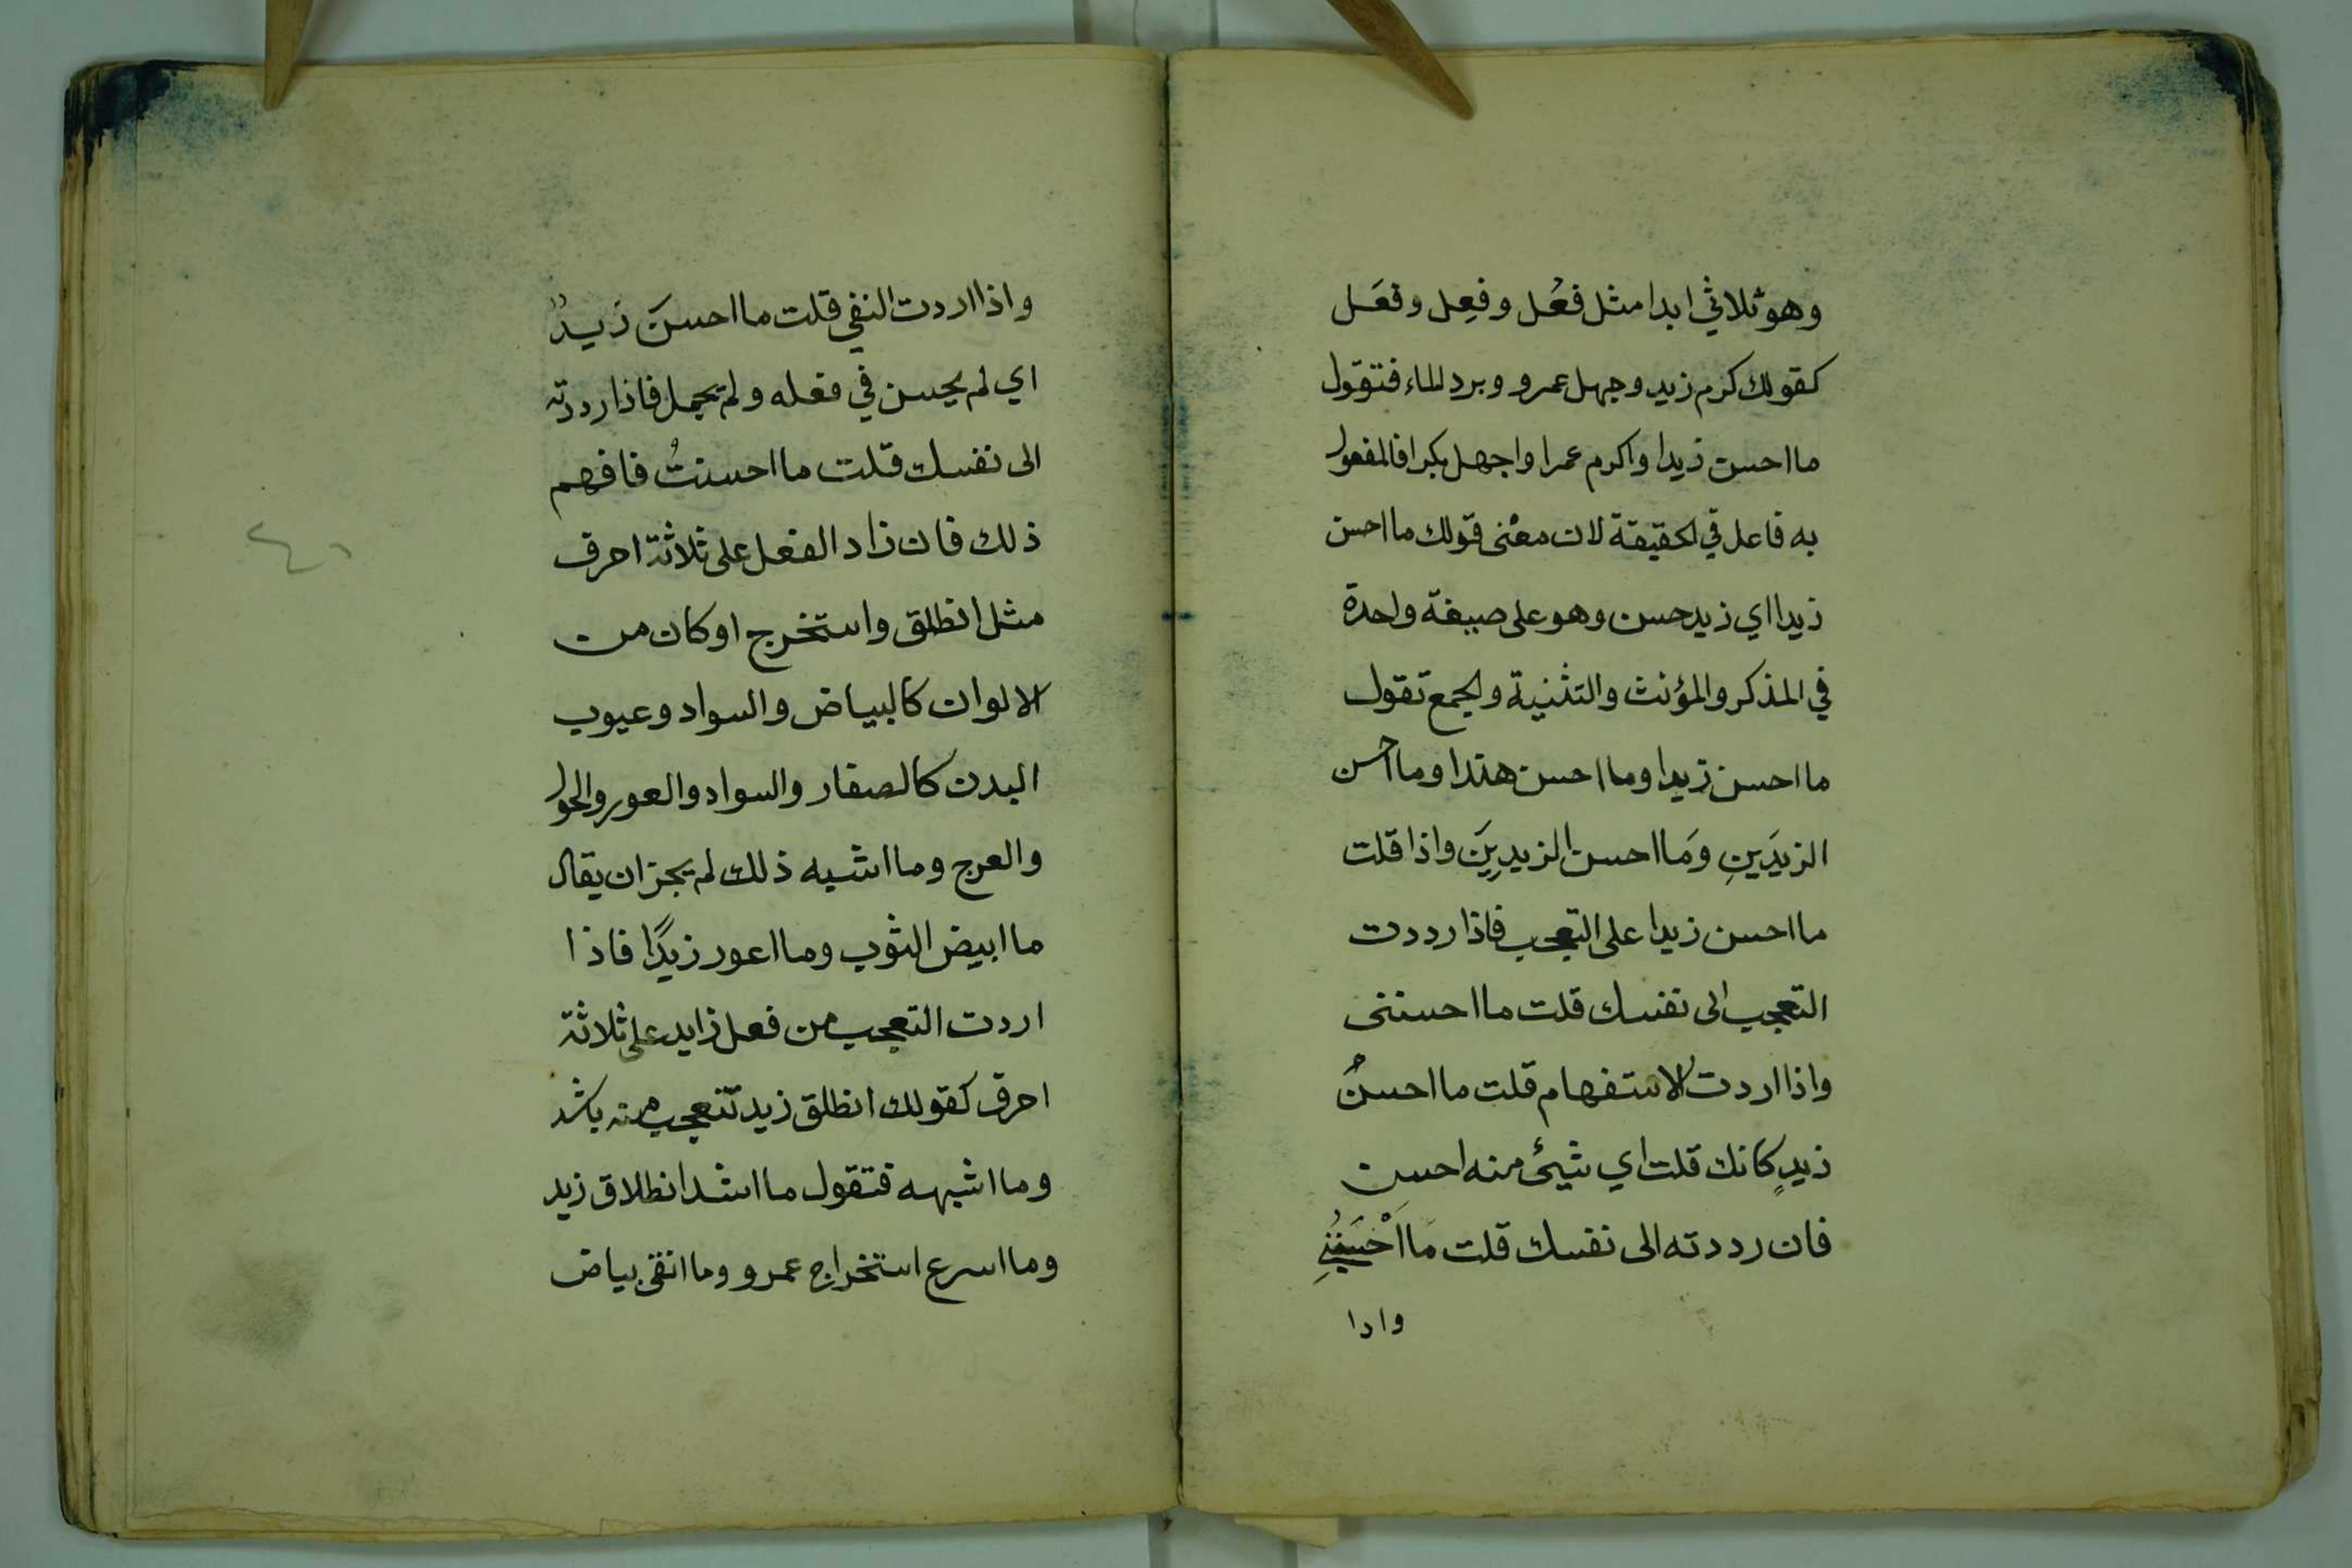 وهو ثلاثي ابدا مثل فعُل وفعِل وفعَل
كقولك كرم زيد وجهل عمرو وبرد الماء فتقول
ما احسن زيدا واكرم عمرا واجهل بكرا فالمفعول
به فاعل في الحقيقة لان معنى قولك ما احسن
زيدا اي زيد حسن وهو على صيغة واحدة
في المذكر والمؤنث والتثنية والجمع تقول
ما احسن زيدا وما احسن هندا وما احسن
الزيدَينِ وَما احسن الزيدِينَ واذا قلت
ما احسن زيدا على التعجب فاذا رددت
التعجب الى نفسك قلت ما احسننى
واذا اردت الاستفهام قلت ما احسنُ
زيدٍ كانك قلت اي شيئ منه احسن
فان رددته الى نفسك قلت مَا اَحْسَنُنِي
وادا
واذا اردت النفي قلت ما احسنَ زيدٌ
اي لم يحسن في فعله ولم يجمل فاذا رددته
الى نفسك قلت ما احسنتُ فافهم
ذلك فان زاد الفعل على ثلاثة احرف
مثل انطلق واستخرج او كان من
الالوان كالبياض والسواد وعيوب
البدن كالصفار والسواد والعور والحول
والعرج وما اشبه ذلك لم يجز ان يقال
ما ابيض الثوب وما اعور زيدًا فاذا
اردت التعجب من فعل زايد على ثلاثة
احرف كقولك انطلق زيد تتعجب منه باشد
وما اشبهه فتقول ما اشد انطلاق زيد
وما اسرع استخراج عمرو وما انقى بياض